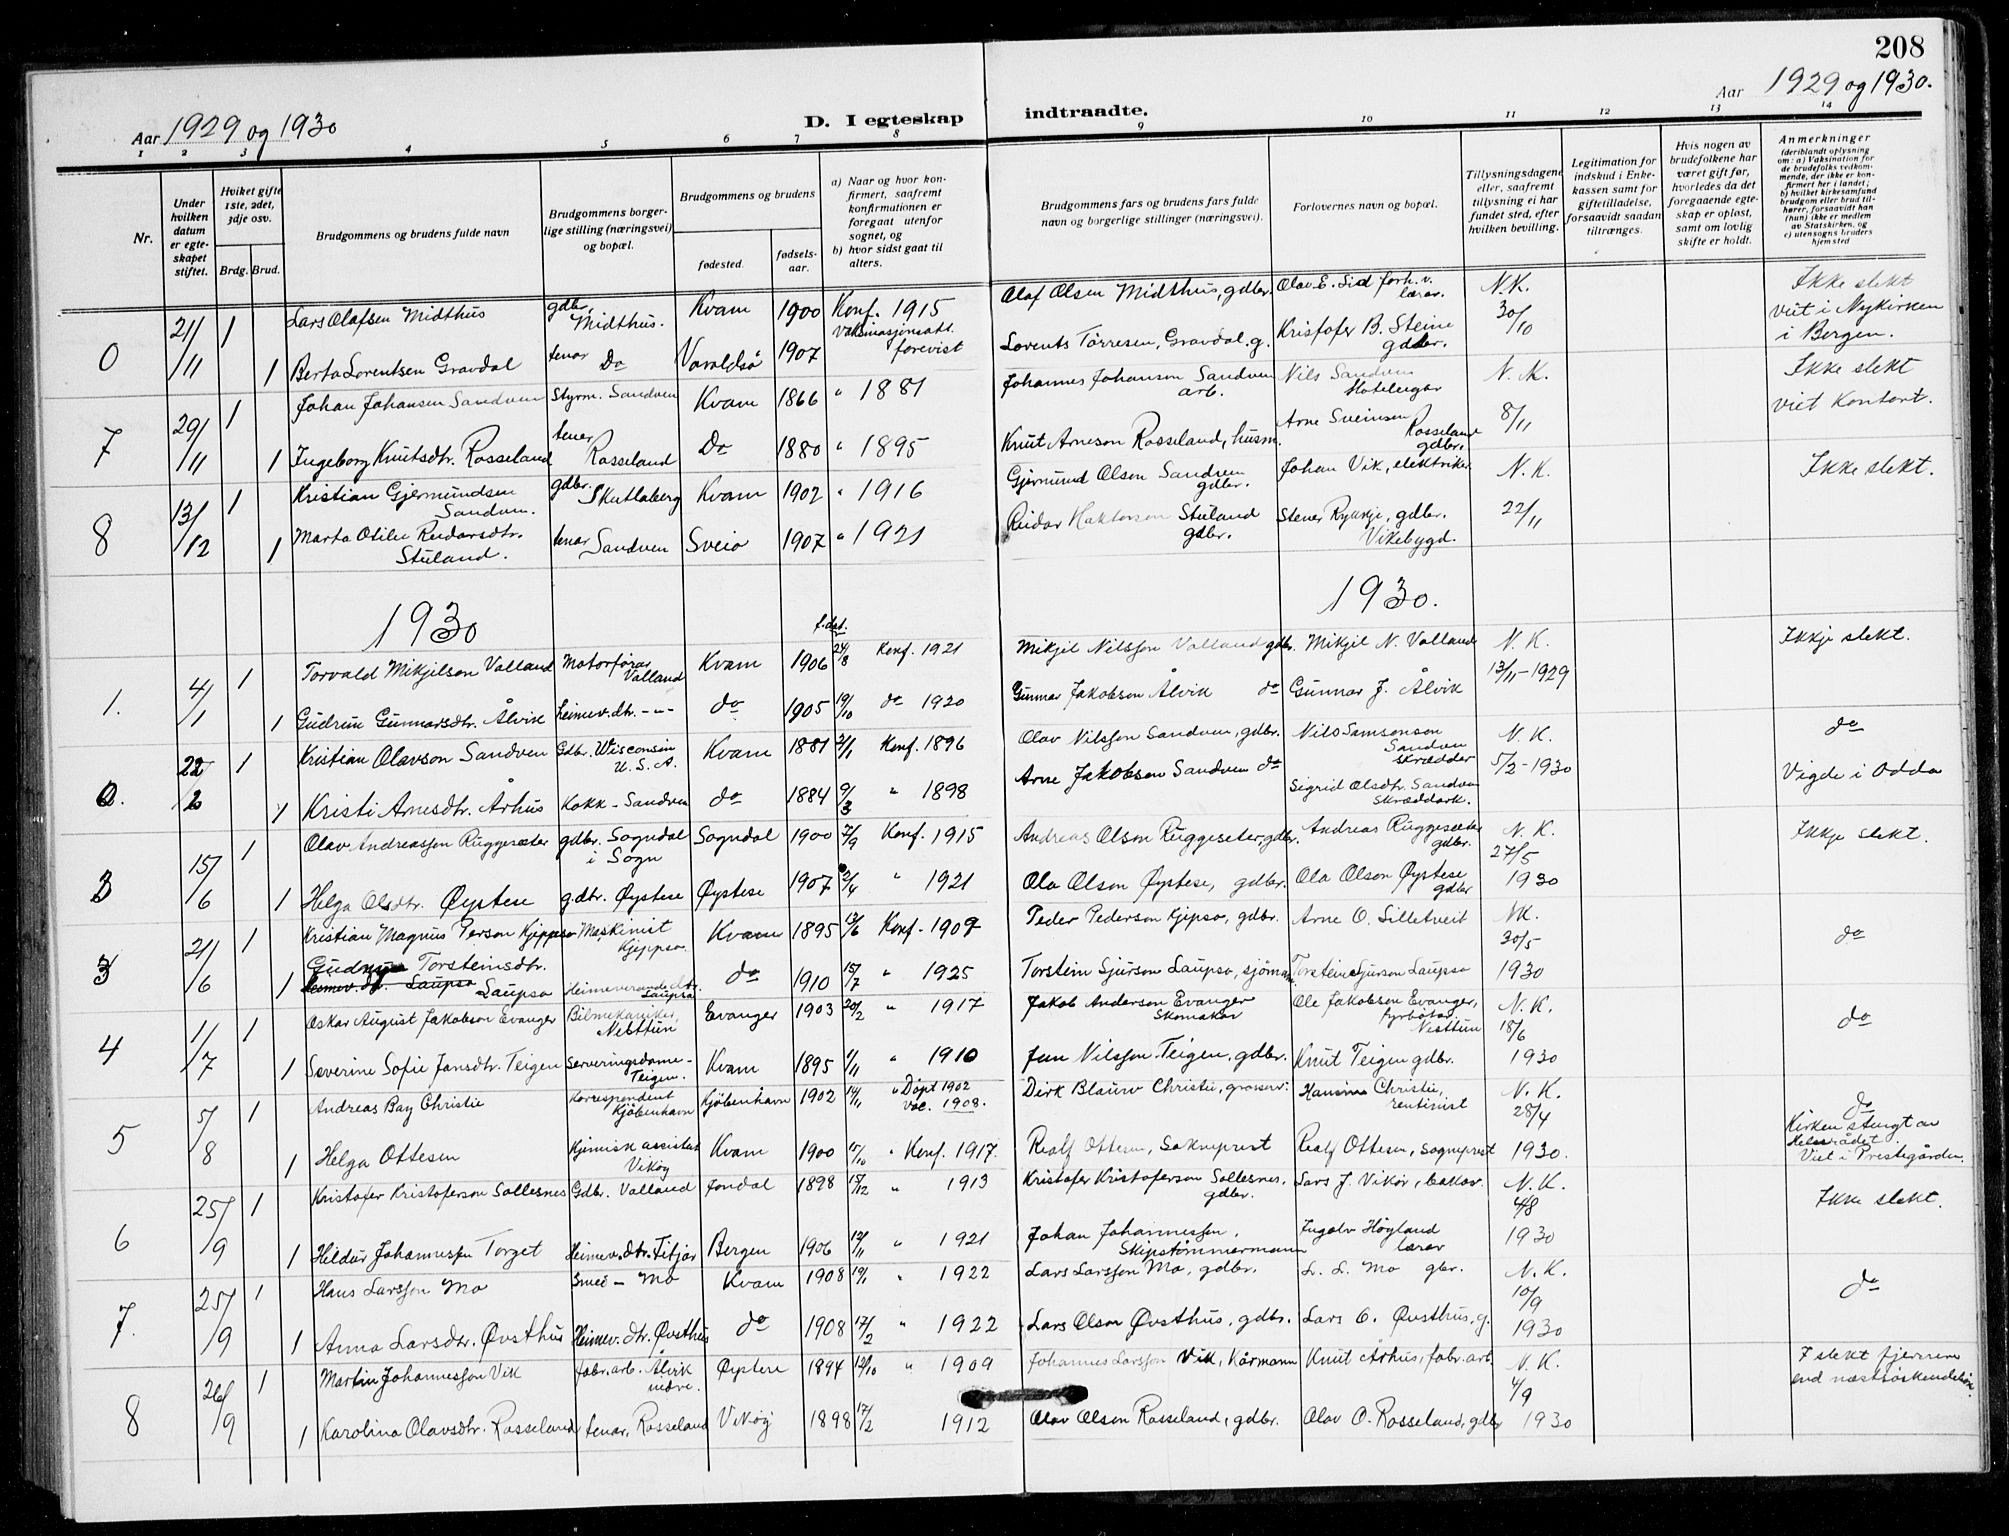 208
Aar 1929 og 1930
D. I egteskap indtraadte.
Aar 1929 og 1930.
1 2 3 4 5 6 7 8 9 10 11 12 13 14
Nr.
Under hvilken datum er egteskapet stiftet.
Hvilket gifte 1ste, 2det, 3dje osv.
Brdg. Brud.
Brudgommens og brudens fulde navn
Brudgommens borgerlige stilling (næringsvei) og bopæl.
Brudgommens og brudens
fødested. fødselsaar.
a) Naar og hvor konfirmert, saafremt konfirmationen er foregaat utenfor sognet, og
b) hvor sidst gaat til alters.
Brudgommens fars og brudens fars fulde navn og borgerlige stillinger (næringsvei).
Forlovernes navn og bopæl.
Tillysningsdagene eller, saafremt tillysning ei har fundet sted, efter hvilken bevilling.
Legitimation for indskud i Enkekassen samt for giftetilladelse, forsaavidt saadan tiltrænges.
Hvis nogen av brudefolkene har været gift før, hvorledes da det foregaaende egteskap er opløst, samt om lovlig skifte er holdt.
Anmerkninger
(deriblandt oplysning om: a) Vaksination for de brudefolks vedkommende, der ikke er konfirmert her i landet; b) hvilket kirkesamfund brudgom eller brud tilhører, forsaavidt han (hun) ikke er medlem av Statskirken, og c) utensogns bruders hjemsted
21/11 1 Lars Olafsen Midthus gdbr. Midthus. Kvam 1900 Konf. 1915 Olaf Olsen Midthus, gdbr. N.K. 30/10 Ikke slekt
viet i Nykirken i Bergen.
1 Berta Lorentsen Gravdal Do Varaldsö 1907 Lorents Tørresen, Gravdal. g. Kristofer B. Steine gdbr.
7 29/11 1 Johan Johansen Sandven Styrm. Sandven Kvam 1866 " 1881 Johannes Johanson Sandven arb. Nils Sandven N. K. 8/11 Ikke slekt
viet Kontart.
1 Ingeborg Knutsdtr. Rosseland Rosseland Do 1880 " 1895 Knut Arneson Rosseland, husm. Arne Sveinsen Rosseland gdbr.
8 13/12 1 Kristian Gjermundsen Sandven. gdbr. Skutlaberg Kvam 1902 " 1916 Gjermund Olson Sandven gdbr. Johan Vik, elektriker N. K. 22/11 Ikke slekt.
1 Marta Otilie Reidarsdtr. Stuland. Sandven Sveio 1907 " 1921 Reidar Stuland gdbr. gdbr. Vikebygd.
1930 1930.
f. dat.
1. 4/1 1 Torvald Mikjelson Valland Motorförar Valland Kvam 1906 24/8 Konf. 1921 Mikjel Nilsson Valland gdbr. Mikjel N. Valland N. K. 13/11-1929 Ikkje slekt.
1 Gudrun Gunnarsdtr. Ålvik heimev. dtr. -"- do 1905 19/10 do 1920 Gunnar Jakobson Ålvik do Gunnar J. Ålvik
22/2 1 Kristian Olavson Sandven Gdbr. Wisconsin U.S.A. Kvam 1881 2/1 Konf. 1896 Olav Nilsson Sandven, gdbr. Nils Samsonson Sandven skrædder N. K. 5/2-1930 do
Vigde i Odda
1 Kristi Arnesdtr. Århus Kokk - Sandven do 1884 9/3 " 1898 Arne Jakobson Sandven do Sigrid Olsdtr. Sandven
3 15/6 1 Olav Andreassen Ruggesæter gdbr. Sogndal i Sogn Sogndal 1900 7/9 Konf. 1915 Andreas Olson Ruggeseter, gdbr. Andreas Ruggesæter gdbr. N. K. 27/5 1930 Ikkje slekt.
1 Helga Olsdtr. Øystese gdbr. Øystese Øystese 1907 2/4 " 1921 Ola Olson Øystese, gdbr. Ola Olson Øystese gdbr
3 21/6 1 Kristian Magnus Person Kjepsø Maskinist Kvam 1895 13/6 Konf. 1909 Peder Pederson Kjepsø, gdbr. Arne O. Silletveit N.K. 30/5 1930 do
1 Torsteinsdtr. Laupsa Heimeverande dtr. Laupsa do 1910 15/7 " 1925 Torstein Sjurson Laupsa, sjömann Torstein Sjurson Laupsa
4 1/7 1 Oskar August Jakobson Evanger Bilmekaniker, Nesttun Evanger 1903 20/2 " 1917 Jakob Anderson Evanger Skomakar Ole Jakobson Evanger, fyrbötar. Nesttun N. K. 18/6 1930 do
1 Severine Sofie Jonsdtr. Teigen Serveringsdame - Teigen. Kvam 1895 1/11 " 1910 Jon Nilsson Teigen, gdbr. Knut Teigen gdbr.
5 5/8 1 Andreas Bay Christie Korrespondent Kjöbenhavn Kjöbenhavn 1902 14/11 " Döpt 1902 vac. 1908. Dirk Blauw Christie, grosserer Christie, rentinist N. K. 28/4 1930. do
Kirken stengt av Helserådet. Viet i Prestegården.
1 Helga Ottesen Kjemisk assistent Vikøy Kvam 1900 15/10 " Konf. 1917. Rolf Ottesen, Sokneprest Rolf Ottesen, sogneprest
6 25/9 1 Kristofer Kristoferson Sollesnes Gdbr. Valland Jondal 1898 15/12 " 1913 Kristofer Kristoferson Sollesnes. gdbr. Lars J. Vikør, bakar. N. K. 4/8 1930 Ikke slekt.
1 Hildur Johannessen Torget Heimev. dtr. Fitjar Bergen 1906 12/11 " 1921 Johan Johannessen, Skipstømmermann Ingolv Høyland lærer
7. 25/9 1 Hans Larsson Mo Smed - Mo Kvam 1908 19/1 " 1922 Lars Larsson Mo, gdbr. L. L. Mo gbr. N. K. 10/9 1930 do
1 Anna Larsdtr. Øvsthus Heimev. dtr. Øvsthus do 1908 17/2 " 1922 Lars Olson Øvsthus, gdbr. Lars O. Øvsthus, g.
8 26/9 1 Martin Johannesson Vik fabr. arb. Ålvik nedre. Øystese 1894 12/10 " 1909 Johannes Larsson Vik, Kårmann Knut Århus, fabr. arb. N. K. 4/9 1930 I slekt fjernere end næstsøskendebörn.
1 Karolina Olavsdtr. Rosseland tenar, Rosseland Vikøy 1898 17/2 1912 Olav Olson Rosseland, gdbr. Olav O. Rosseland, gdbr